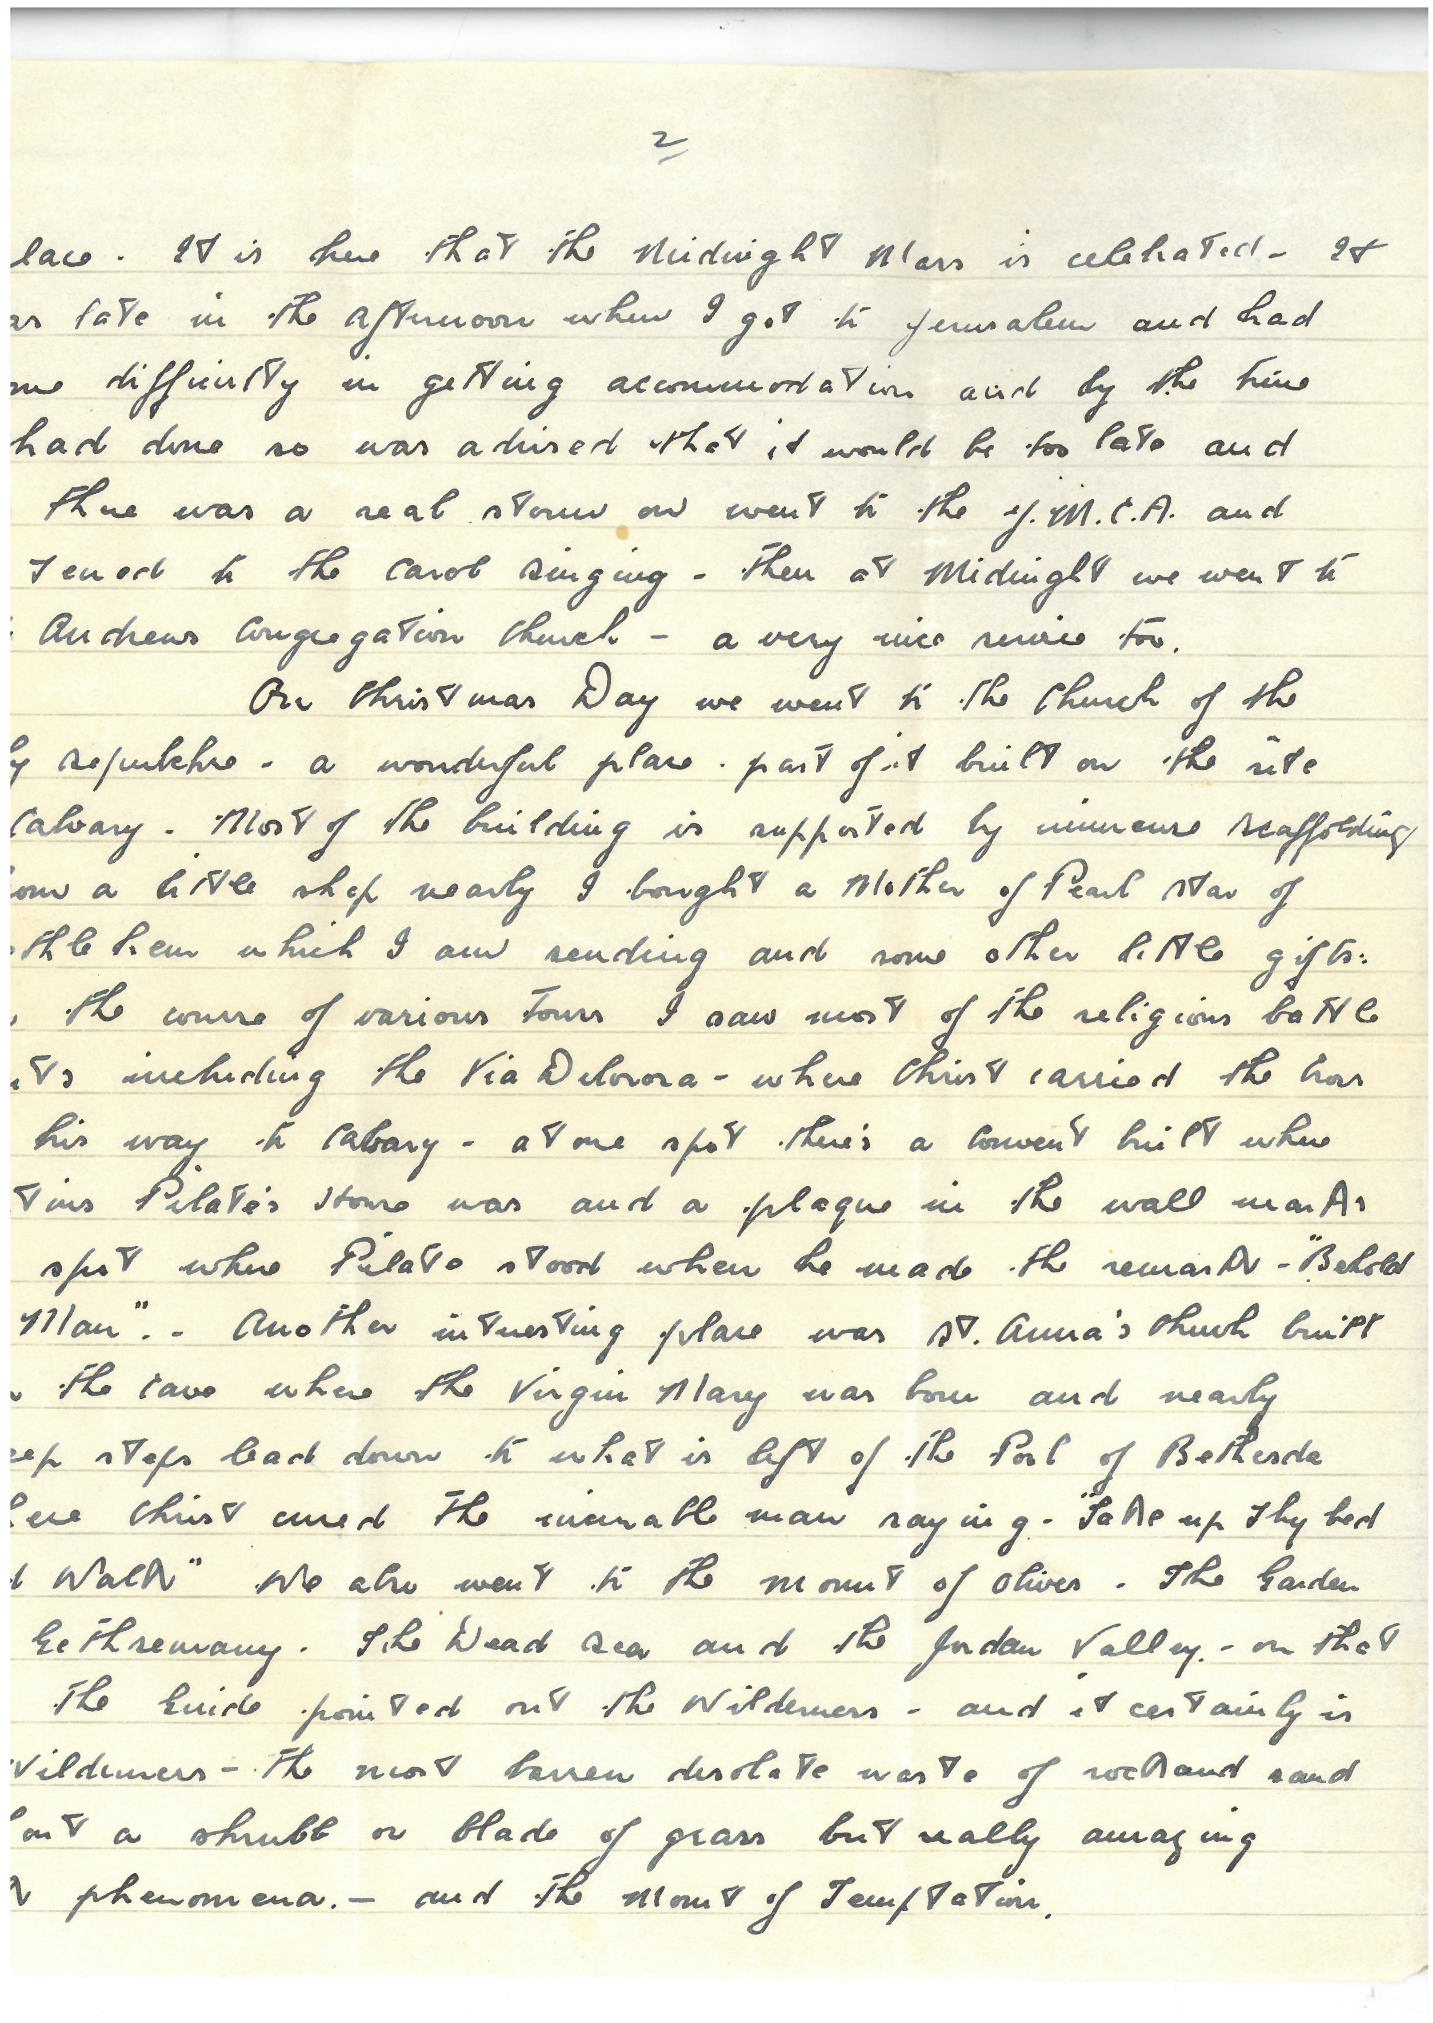 2
lace. It is here that the Midnight Mass is celebrated - It
as late in the afternoon when I got to Jerusalem and had
me difficulty in getting accommodation and by the time
had done so was advised that it would be too late and
there was a real storm on went to the Y.M.C.A. and
tened to the Carol singing - then at Midnight we went to
Andrews Congregation Church - a very nice service too.
On Christmas Day we went to the Church of the
y Sepulchre - a wonderful place. part of it built on the site
Calvary. Most of the building is supported by immense scaffolding
om a little shop nearby I bought a Mother of Pearl Star of
thlehem which I am sending and some other little gifts.
the course of various tours I saw most of the religious battle
ts including the Via Delorosa - where Christ carried the Cross
his way to Calvary - at one spot there's a Convent built where
tius Pilate's House was and a plaque in the wall marks
spot where Pilate stood when he made the remark - "Behold
Man". - Another interesting place was St. Anna's Church built
the cave where the Virgin Mary was born and nearby
eep steps lead down to what is left of the Pool of Bethesda
ere Christ cured the incurable man saying - "Take up Thy bed
d Walk" We also went to the Mount of Olives. The Garden
Gethsemany. The Dead Sea and the Jordan Valley. - on that
the Guide pointed out the Wilderness - and it certainly is
Wilderness - the most barren desolate waste of rock and sand
out a shrubb or blade of grass but really amazing
k phenomena. - and the Mount of Temptation.